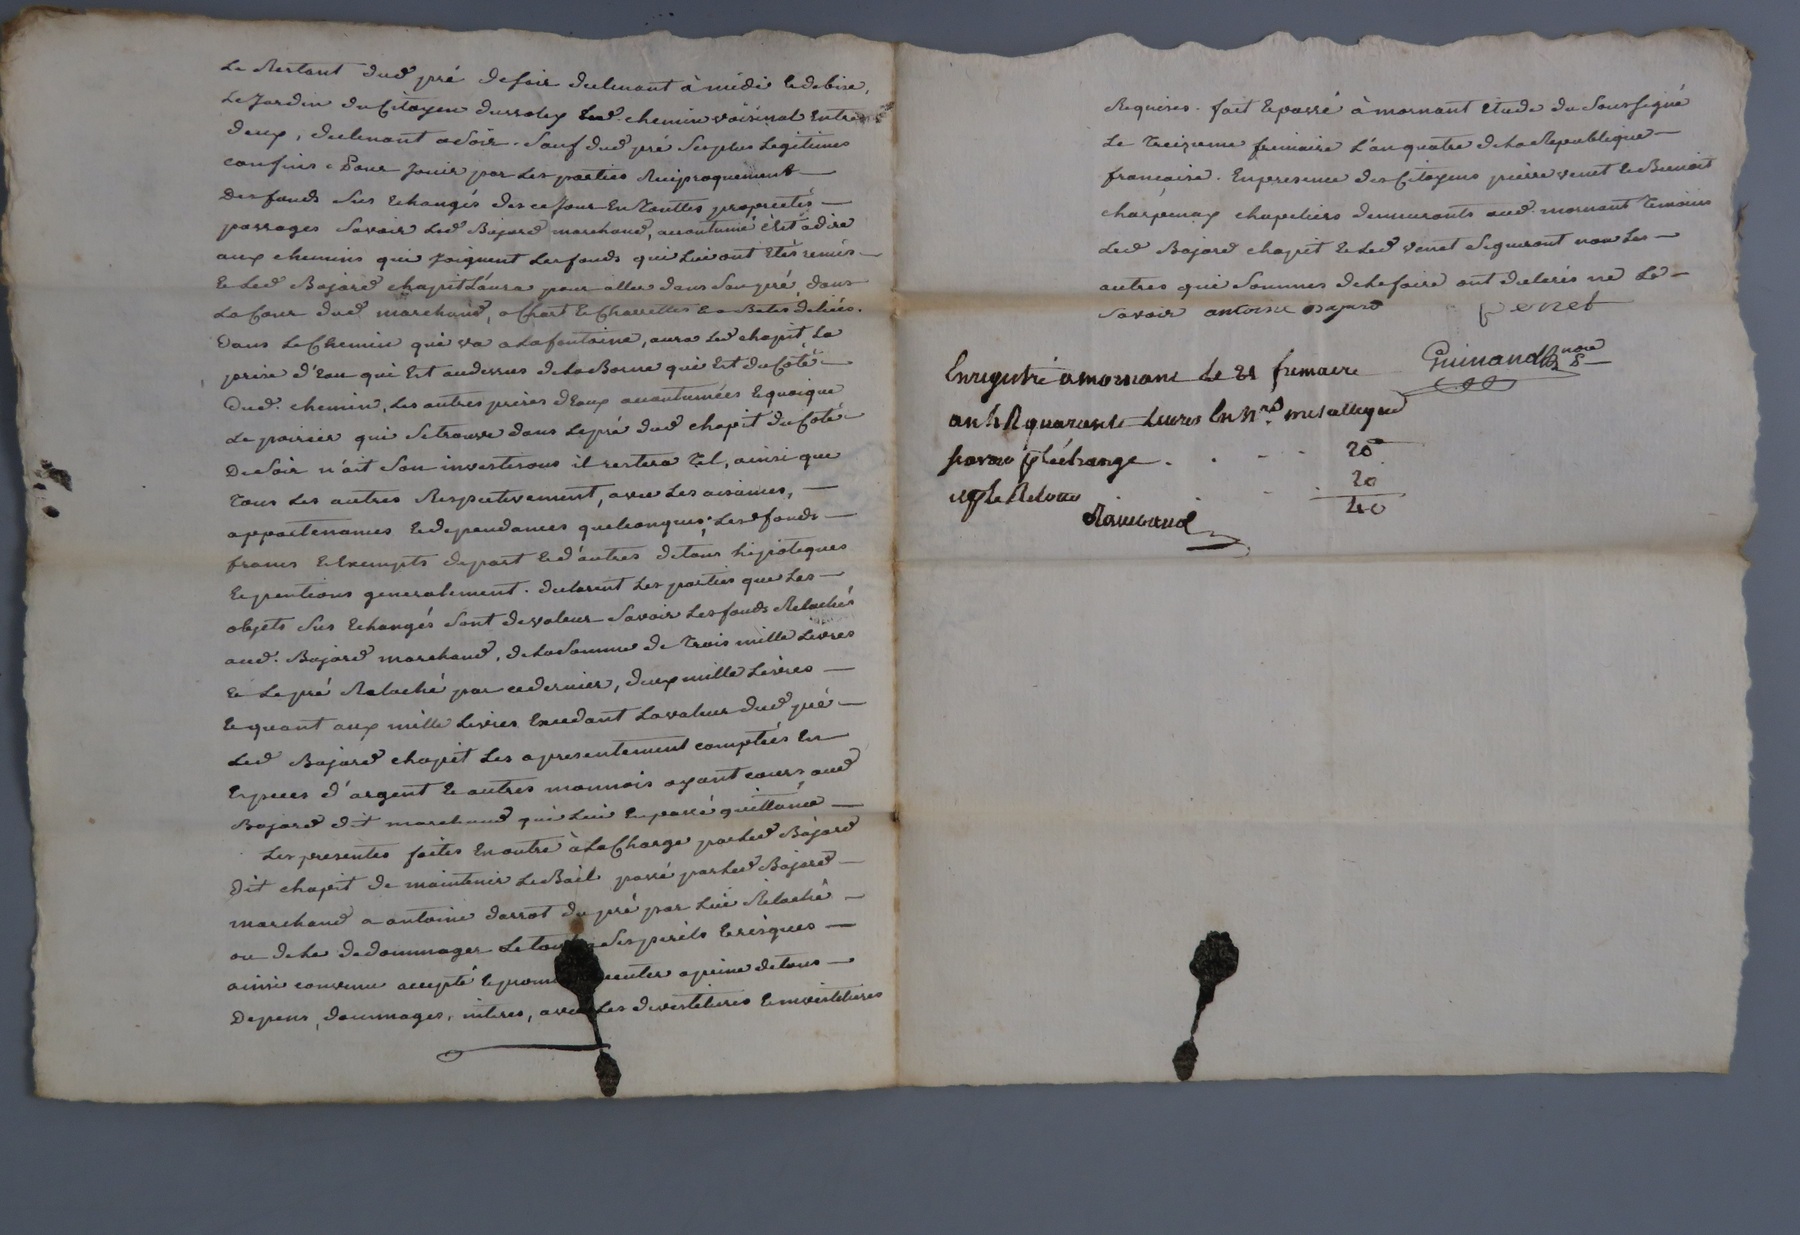 Le Restant dud pré de soir declinant à midi & de bise,
Le Jardin du Citoyen dussolex led. chemin voisinal Entre
deux, declinant a soir. Sauf dud pré Ses plus Legitimes
confins. Pour Jouir par Les parties Reciproquement —
Des fonds Sus Echangés des ce Jour En Touttes proprietés —
passages Savoir Led Bajard marchand, accoutumé c'est a dire
aux chemins qui Joignent Les fonds qui Lui ont Etés remis —
& Led Bajard chapit L'aura pour aller dans Son pré, dans
La Cour dud marchand, a Chart & Charrettes & a Betes deliées.
Dans Le Chemin qui va a La fontaine, aura Led chapit, La
prise d'Eau qui Est audessus de La Borne qui Est du Coté —
Dud. chemin, Les autres prises d'Eaux accoutumées & quoique
Le poirier qui Se trouve dans Le pré dud chapit du Coté —
De Soir n'ait Son investizons il restera Tel, ainsi que
Tous Les autres Respectivement, avec Les aisances, —
appartenances & dependances quelconques, Lesd fonds —
francs & Exempts de part & d'autres de tous hipoteques
& pentions generalement. declarent Les parties que Les —
objets Sus Echangés Sont de valeur Savoir Les fonds Relachés
aud. Bajard marchand, de La Somme de Trois mille Livres
& Le pré Relaché par ce dernier, deux mille Livres —
& quant aux mille Livres Excedant La valeur dud pré —
Led Bajard chapit Les a presentement comptés En
Especes d'argent & autres monnois ayant cours aud
Bajard dit marchand qui Lui En passe quittance —
Les presentes faites En outre à La Charge par Led Bajard
Dit chapit de maintenir Le Bail passé par Led Bajard —
marchand a antoine darrot du pré par Lui Relaché —
ou de Le dedommager Le tout a Ses perils & risques —
ainsi convenu accepté & promis a peine de tous —
Depens, dommages, interes, avec Les devestitures & investitures
Requises. fait & passé à mornant Etude du Soussigné
Le Treizieme frimaire L'an quatre de La Republique —
francaise. En presence des Citoyens pierre venet & Benoit
charpenay chapeliers demeurants aud. mornant Temoins
Led Bajard chapit & Led venet Signeront non Les —
autres qui Sommés de Le faire ont declarés ne Le —
Savoir antoine bajard venet
Guinand nore
Enregistré a mornant Le 21 frimaire
an 4 R quarante Livres En Nre metallique
Savoir pr L'échange . . . 20
& pr Le Retour . . 20
40
Raimbaud